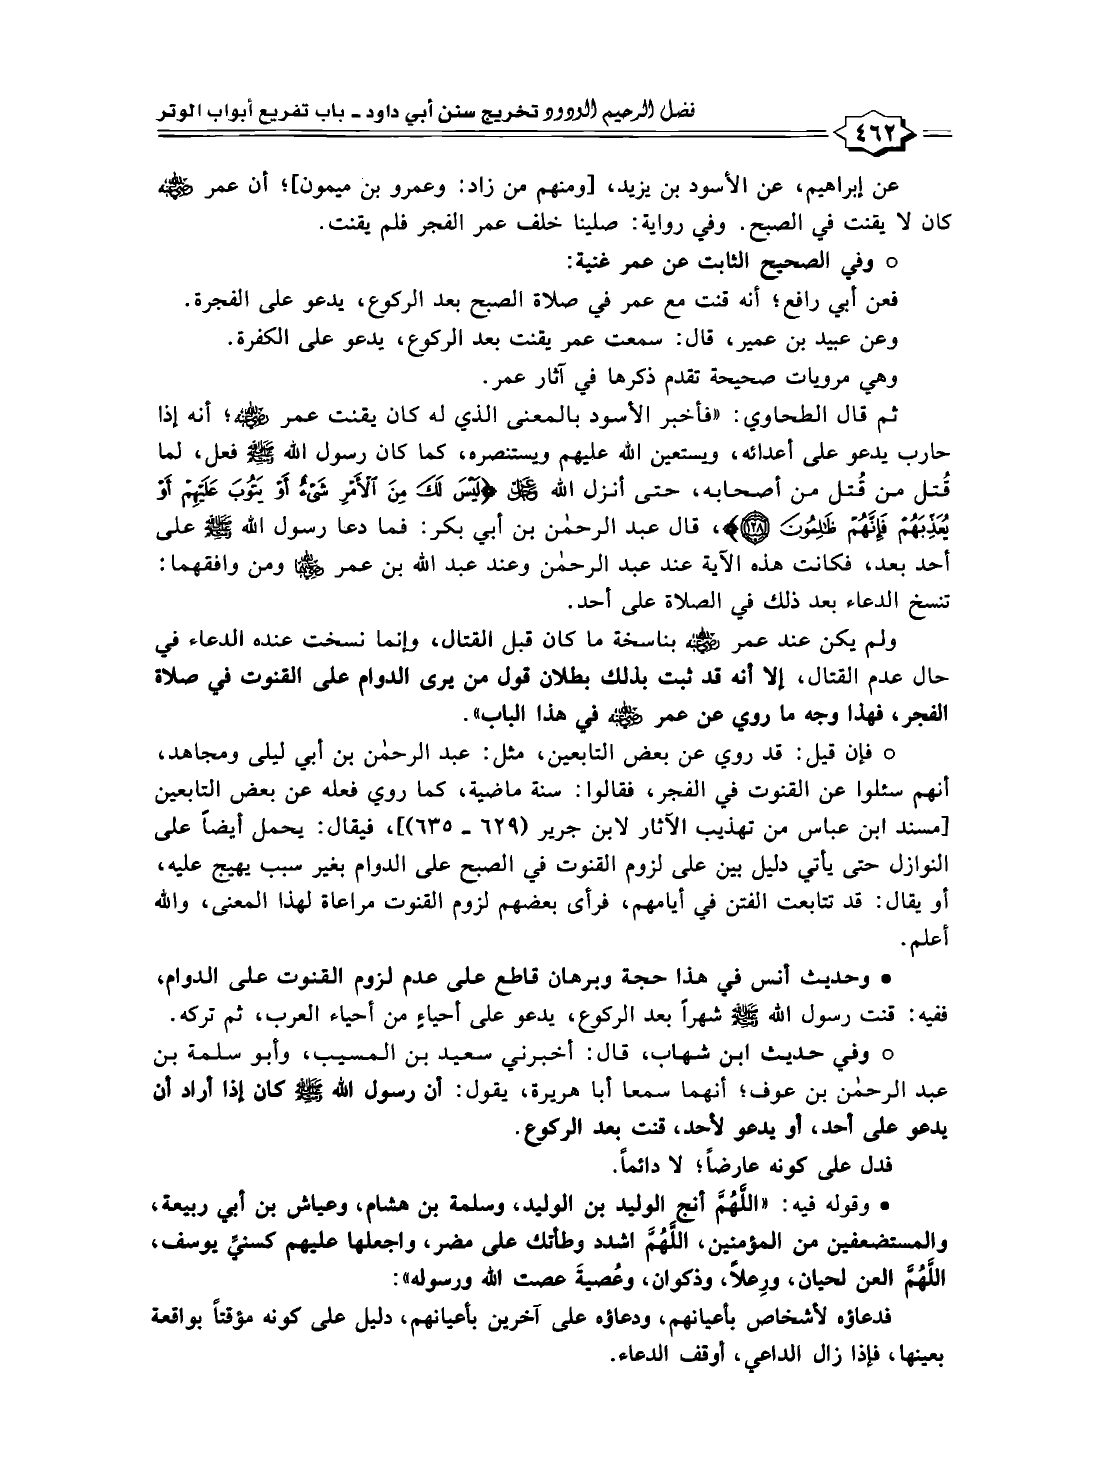 فضل الرحيم الودود تخريج سنن أبي داود ـ باب تفريع أبواب الوتر
٤٦٢
عن إبراهيم، عن الأسود بن يزيد، [ومنهم من زاد: وعمرو بن ميمون]؛ أن عمر رضي الله عنه
كان لا يقنت في الصبح. وفي رواية: صلينا خلف عمر الفجر فلم يقنت.
○ وفي الصحيح الثابت عن عمر غنية:
فعن أبي رافع؛ أنه قنت مع عمر في صلاة الصبح بعد الركوع، يدعو على الفجرة.
وعن عبيد بن عمير، قال: سمعت عمر يقنت بعد الركوع، يدعو على الكفرة.
وهي مرويات صحيحة تقدم ذكرها في آثار عمر.
ثم قال الطحاوي: «فأخبر الأسود بالمعنى الذي له كان يقنت عمر رضي الله عنه؛ أنه إذا
حارب يدعو على أعدائه، ويستعين الله عليهم ويستنصره، كما كان رسول الله ﷺ فعل، لما
قُتل من قُتل من أصحابه، حتى أنزل الله عز وجل ﴿لَيْسَ لَكَ مِنَ ٱلْأَمْرِ شَىْءٌ أَوْ يَتُوبَ عَلَيْهِمْ أَوْ
يُعَذِّبَهُمْ فَإِنَّهُمْ ظَٰلِمُونَ ١٢٨﴾، قال عبد الرحمٰن بن أبي بكر: فما دعا رسول الله ﷺ على
أحد بعد، فكانت هذه الآية عند عبد الرحمٰن وعند عبد الله بن عمر رضي الله عنهما ومن وافقهما:
تنسخ الدعاء بعد ذلك في الصلاة على أحد.
ولم يكن عند عمر رضي الله عنه بناسخة ما كان قبل القتال، وإنما نسخت عنده الدعاء في
حال عدم القتال، إلا أنه قد ثبت بذلك بطلان قول من يرى الدوام على القنوت في صلاة
الفجر، فهذا وجه ما روي عن عمر رضي الله عنه في هذا الباب».
○ فإن قيل: قد روي عن بعض التابعين، مثل: عبد الرحمٰن بن أبي ليلى ومجاهد،
أنهم سئلوا عن القنوت في الفجر، فقالوا: سنة ماضية، كما روي فعله عن بعض التابعين
[مسند ابن عباس من تهذيب الآثار لابن جرير (٦٢٩ ـ ٦٣٥)]، فيقال: يحمل أيضاً على
النوازل حتى يأتي دليل بين على لزوم القنوت في الصبح على الدوام بغير سبب يهيج عليه،
أو يقال: قد تتابعت الفتن في أيامهم، فرأى بعضهم لزوم القنوت مراعاة لهذا المعنى، والله
أعلم.
• وحديث أنس في هذا حجة وبرهان قاطع على عدم لزوم القنوت على الدوام،
ففيه: قنت رسول الله ﷺ شهراً بعد الركوع، يدعو على أحياءٍ من أحياء العرب، ثم تركه.
○ وفي حديث ابن شهاب، قال: أخبرني سعيد بن المسيب، وأبو سلمة بن
عبد الرحمٰن بن عوف؛ أنهما سمعا أبا هريرة، يقول: أن رسول الله ﷺ كان إذا أراد أن
يدعو على أحد، أو يدعو لأحد، قنت بعد الركوع.
فدل على كونه عارضاً؛ لا دائماً.
• وقوله فيه: «اللَّهُمَّ أنج الوليد بن الوليد، وسلمة بن هشام، وعياش بن أبي ربيعة،
والمستضعفين من المؤمنين، اللَّهُمَّ اشدد وطأتك على مضر، واجعلها عليهم كسنيِّ يوسف،
اللَّهُمَّ العن لحيان، ورِعلاً، وذكوان، وعُصيةَ عصت الله ورسوله»:
فدعاؤه لأشخاص بأعيانهم، ودعاؤه على آخرين بأعيانهم، دليل على كونه مؤقتاً بواقعة
بعينها، فإذا زال الداعي، أوقف الدعاء.